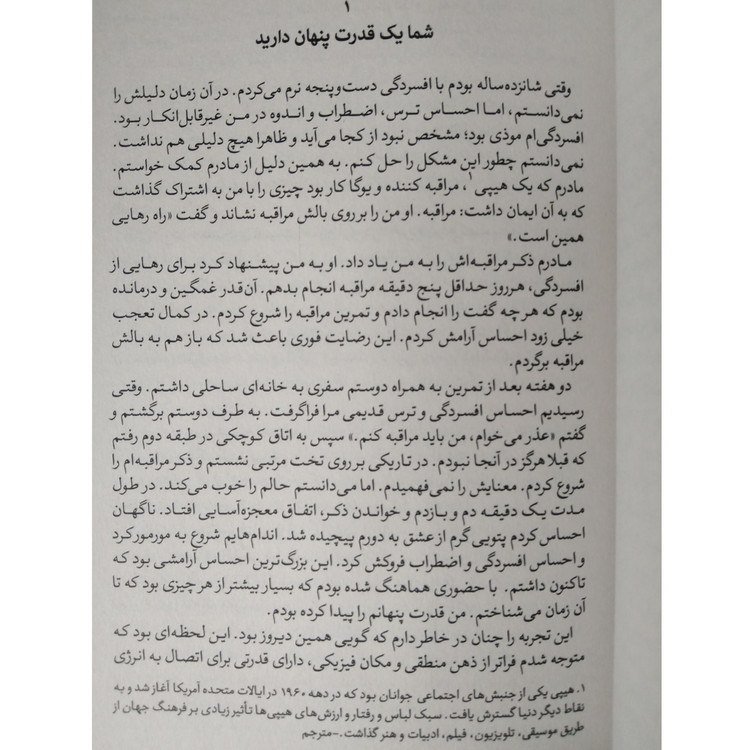 ۱
شما یک قدرت پنهان دارید
وقتی شانزده‌ساله بودم با افسردگی دست‌وپنجه نرم می‌کردم. در آن زمان دلیلش را
نمی‌دانستم، اما احساس ترس، اضطراب و اندوه در من غیرقابل‌انکار بود.
افسردگی‌ام موذی بود؛ مشخص نبود از کجا می‌آید و ظاهرا هیچ دلیلی هم نداشت.
نمی‌دانستم چطور این مشکل را حل کنم. به همین دلیل از مادرم کمک خواستم.
مادرم که یک هیپی۱، مراقبه کننده و یوگا کار بود چیزی را با من به اشتراک گذاشت
که به آن ایمان داشت: مراقبه. او من را بر روی بالش مراقبه نشاند و گفت «راه رهایی
همین است.»
مادرم ذکر مراقبه‌اش را به من یاد داد. او به من پیشنهاد کرد برای رهایی از
افسردگی، هرروز حداقل پنج دقیقه مراقبه انجام بدهم. آن‌قدر غمگین و درمانده
بودم که هر چه گفت را انجام دادم و تمرین مراقبه را شروع کردم. در کمال تعجب
خیلی زود احساس آرامش کردم. این رضایت فوری باعث شد که باز هم به بالش
مراقبه برگردم.
دو هفته بعد از تمرین به همراه دوستم سفری به خانه‌ای ساحلی داشتم. وقتی
رسیدیم احساس افسردگی و ترس قدیمی مرا فراگرفت. به طرف دوستم برگشتم و
گفتم «عذر می‌خوام، من باید مراقبه کنم.» سپس به اتاق کوچکی در طبقه دوم رفتم
که قبلا هرگز در آنجا نبودم. در تاریکی بر روی تخت مرتبی نشستم و ذکر مراقبه‌ام را
شروع کردم. معنایش را نمی‌فهمیدم. اما می‌دانستم حالم را خوب می‌کند. در طول
مدت یک دقیقه دم و بازدم و خواندن ذکر، اتفاق معجزه‌آسایی افتاد. ناگهان
احساس کردم پتویی گرم از عشق به دورم پیچیده شد. اندام‌هایم شروع به مورمور کرد
و احساس افسردگی و اضطراب فروکش کرد. این بزرگ‌ترین احساس آرامشی بود که
تاکنون داشتم. با حضوری هماهنگ شده بودم که بسیار بیشتر از هر چیزی بود که تا
آن زمان می‌شناختم. من قدرت پنهانم را پیدا کرده بودم.
این تجربه را چنان در خاطر دارم که گویی همین دیروز بود. این لحظه‌ای بود که
متوجه شدم فراتر از ذهن منطقی و مکان فیزیکی، دارای قدرتی برای اتصال به انرژی
۱. هیپی یکی از جنبش‌های اجتماعی جوانان بود که در دهه ۱۹۶۰ در ایالات متحده آمریکا آغاز شد و به
نقاط دیگر دنیا گسترش یافت. سبک لباس و رفتار و ارزش‌های هیپی‌ها تأثیر زیادی بر فرهنگ جهان از
طریق موسیقی، تلویزیون، فیلم، ادبیات و هنر گذاشت.-مترجم